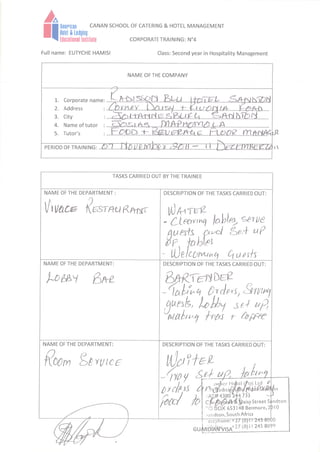 American
Hotel & Lodging
Educational Institute
CANAN SCHOOL OF CATERING & HOTEL MANAGEMENT
CORPORATE TRAINING: N°4
Full name: EUTYCHE HAMISI
Class: Second year in Hospitality Management
NAME OF THE COMPANY
1. Corporate name: RADISSON BLU HOTEL SANDTON
2. Address : CORNER DAISY + RIVONIA ROAD
3. City : JOHANNESBURG SANDTON
4. Name of tutor : JOSIAS MAPHOMOLA
5. Tutor's : FOOD + BEVERAGE FLOOR MANAGER
PERIOD OF TRAINING: 07 NOVEMBER 2011 - 11 DECEMBER 2011
TASKS CARRIED OUT BY THE TRAINEE
NAME OF THE DEPARTMENT :
DESCRIPTION OF THE TASKS CARRIED OUT:
VIVACE RESTAURANT
WAITER
- Clearing tables, serve
guests and Set up
OF tables
- Welcoming Guests
NAME OF THE DEPARTMENT:
DESCRIPTION OF THE TASKS CARRIED OUT:
LOBBY BAR
BARTENDER
- Taking Orders, Serving
guests, Lobby set up,
making teas + Coffee
NAME OF THE DEPARTMENT:
DESCRIPTION OF THE TASKS CARRIED OUT:
Room Service
Waiter
- Tray Set up, taking
orders and
food to
Daisy Street Sandton
BOX 653148 Benmore, 2010
Sandton, South Africa
Telephone +27 (0)11 245 8000
+27 (0)11 245 8099